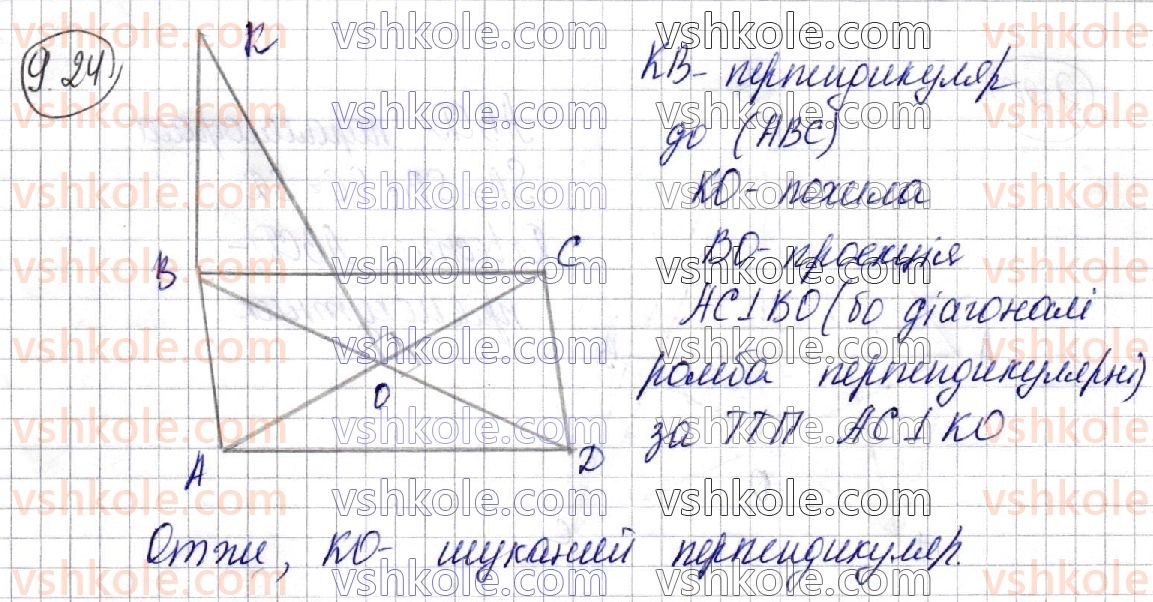 9.24
K
B
C
O
A
D
KB - перпендикуляр
до (ABC)
KO - похила
BO - проекція
AC⊥BO (бо діагоналі
ромба перпендикулярні)
за ТТП AC⊥KO
Отже, KO - шуканий перпендикуляр.
vshkole.com